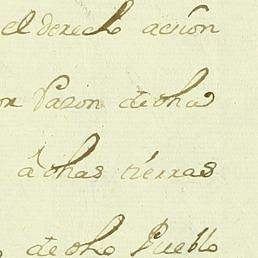 el derecho acsion
on Razon de dha
â dhas tierras
de dho Pueblo